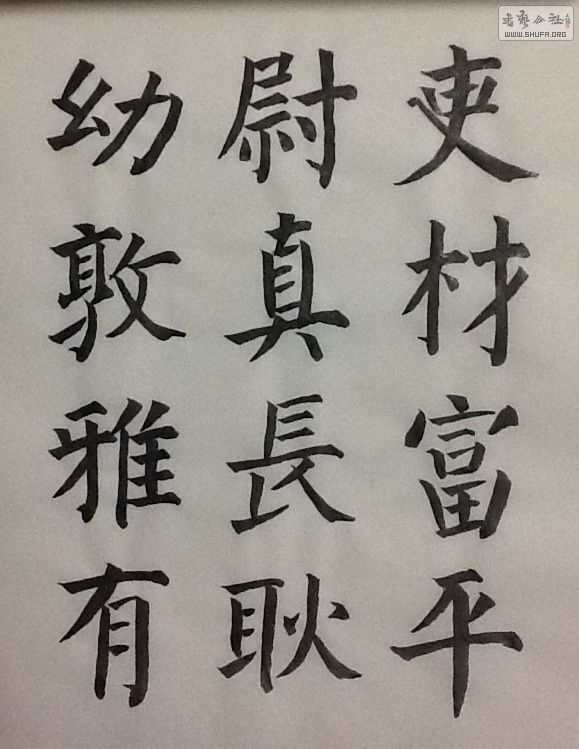 吏材富平
尉真長耿
幼敦雅有
書藝公社
WWW.SHUFA.ORG